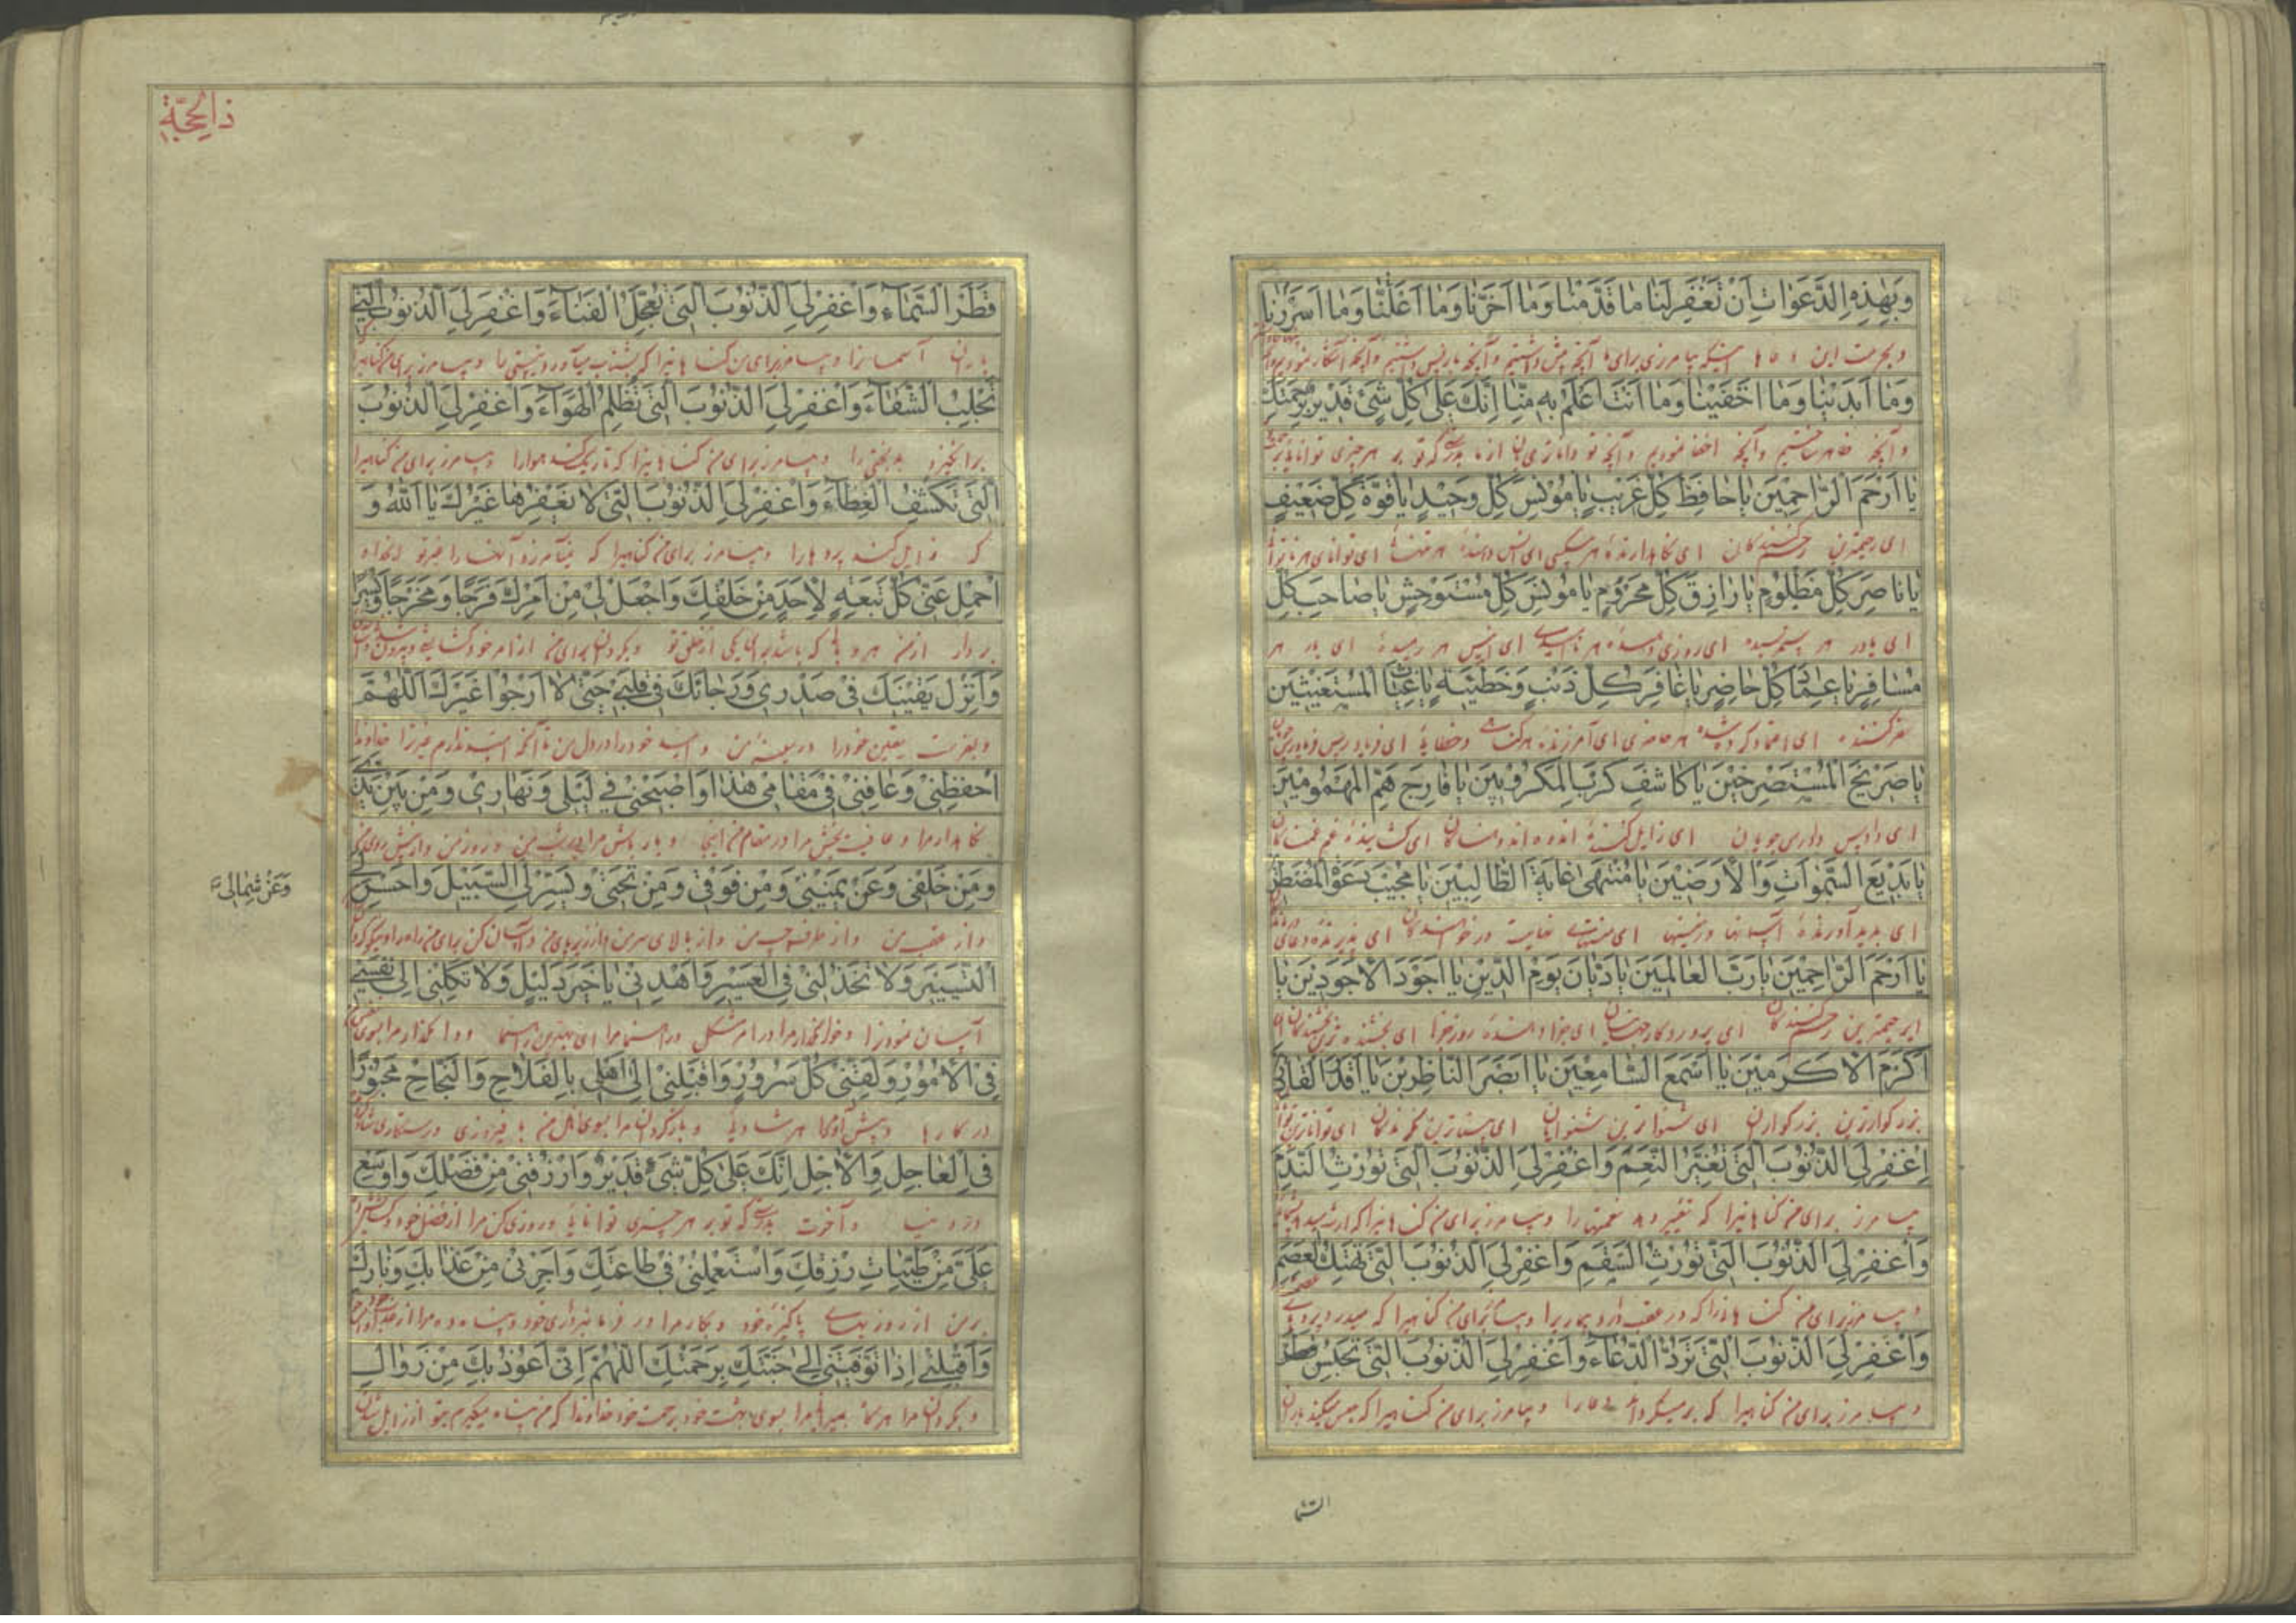 وَبِهٰذِهِ الدَّعَوَاتِ اَنْ تَغْفِرَ لَنَا مَا قَدَّمْنَا وَمَا اَخَّرْنَا وَمَا اَعْلَنَّا وَمَا اَسْرَرْنَا
وبحرمت این دعاها اینکه بیامرزی برای ما آنچه پیش داشتیم وآنچه باز پس داشتیم وآنچه آشکار نمودیم
وَمَا اَبْدَيْنَا وَمَا اَخْفَيْنَا وَمَا اَنْتَ اَعْلَمُ بِهِ مِنَّا اِنَّكَ عَلٰى كُلِّ شَیْءٍ قَدِيْرٌ بِرَحْمَتِكَ
وآنچه ظاهر ساختیم وآنچه اخفا نمودیم وآنچه تو داناتری بآن از ما بدرستی که تو بر هر چیزی توانائی
يَا اَرْحَمَ الرَّاحِمِيْنَ يَا حَافِظَ كُلِّ غَرِيْبٍ يَا مُوْنِسَ كُلِّ وَحِيْدٍ يَا قُوَّةَ كُلِّ ضَعِيْفٍ
ای رحیمترین رحم کنندگان ای نگاهدارنده هر بیکسی ای انس دهنده هر تنها ای توانای هر ناتوان
يَا نَاصِرَ كُلِّ مَظْلُوْمٍ يَا رَازِقَ كُلِّ مَحْرُوْمٍ يَا مُوْنِسَ كُلِّ مُسْتَوْحِشٍ يَا صَاحِبَ كُلِّ
ای یاور هر ستم رسیده ای روزی دهنده هر ناامیدی ای انیس هر رمیده ای یار هر
مُسَافِرٍ يَا عِمَادَ كُلِّ حَاضِرٍ يَا غَافِرَ كُلِّ ذَنْبٍ وَخَطِيْئَةٍ يَا غِيَاثَ الْمُسْتَغِيْثِيْنَ
سفر کننده ای اعتماد کرده شده هر حاضری ای آمرزنده هر گناهی وخطایة ای فریاد رس فریادرس جویان
يَا صَرِيْخَ الْمُسْتَصْرِخِيْنَ يَا كَاشِفَ كَرْبِ الْمَكْرُوْبِيْنَ يَا فَارِجَ هَمِّ الْمَهْمُوْمِيْنَ
ای دادرس داد رسی جویان ای زایل کننده اندوه اندوهناکان ای گشاینده غم غمناکان
يَا بَدِيْعَ السَّمٰوَاتِ وَالْاَرَضِيْنَ يَا مُنْتَهٰى غَايَةِ الطَّالِبِيْنَ يَا مُجِيْبَ دَعْوَةِ الْمُضْطَرِّيْنَ
ای پدید آورنده آسمانها وزمینها ای منتهای غایت درخواهندگان ای پذیرنده دعای
يَا اَرْحَمَ الرَّاحِمِيْنَ يَا رَبَّ الْعَالَمِيْنَ يَا دَيَّانَ يَوْمِ الدِّيْنِ يَا اَجْوَدَ الْاَجْوَدِيْنَ يَا
ای رحیمترین رحم کنندگان ای پروردگار جهانیان ای جزا دهنده روز جزا ای بخشنده ترین بخشندگان ای
اَكْرَمَ الْاَكْرَمِيْنَ يَا اَسْمَعَ السَّامِعِيْنَ يَا اَبْصَرَ النَّاظِرِيْنَ يَا اَقْدَرَ الْقَادِرِيْنَ
بزرگوارترین بزرگواران ای شنواترین شنوایان ای بیناترین نگرندگان ای تواناترین
اِغْفِرْ لِیَ الذُّنُوْبَ الَّتِیْ تُغَيِّرُ النِّعَمَ وَاغْفِرْ لِیَ الذُّنُوْبَ الَّتِیْ تُوْرِثُ النَّدَمَ
بیامرز برای من گناهانیرا که تغییر دهد نعمتها را وبیامرز برای من گناهانیرا که
وَاغْفِرْ لِیَ الذُّنُوْبَ الَّتِیْ تُوْرِثُ السَّقَمَ وَاغْفِرْ لِیَ الذُّنُوْبَ الَّتِیْ تَهْتِكُ الْعِصَمَ
وبیامرز برای من گناهانیرا که در عقب دارد بیماریرا وبیامرز برای من گناهیرا که میدرد پردهای
وَاغْفِرْ لِیَ الذُّنُوْبَ الَّتِیْ تَرُدُّ الدُّعَاءَ وَاغْفِرْ لِیَ الذُّنُوْبَ الَّتِیْ تَحْبِسُ قَطْرَ
وبیامرز برای من گناهیرا که برمیگرداند دعا را وبیامرز برای من گناهیرا که حبس میکند باران
السّما
ذالحِجَّةِ
قَطْرَ السَّمَاءِ وَاغْفِرْ لِیَ الذُّنُوْبَ الَّتِیْ تُعَجِّلُ الْفَنَاءَ وَاغْفِرْ لِیَ الذُّنُوْبَ الَّتِیْ
باران آسمانرا وبیامرز برای من گناهانیرا که بشتاب میآورد نیستی را وبیامرز برای من گناهیرا
تَجْلِبُ الشَّقَاءَ وَاغْفِرْ لِیَ الذُّنُوْبَ الَّتِیْ تُظْلِمُ الْهَوَاءَ وَاغْفِرْ لِیَ الذُّنُوْبَ
برانگیزد بدبختی را وبیامرز برای من گناهانیرا که تاریک کند هوا را وبیامرز برای من گناهیرا
الَّتِیْ تَكْشِفُ الْغِطَاءَ وَاغْفِرْ لِیَ الذُّنُوْبَ الَّتِیْ لَا يَغْفِرُهَا غَيْرُكَ يَا اَللّٰهُ وَ
که زایل کند پردها را وبیامرز برای من گناهیرا که نیامرزد آنها را غیر تو
احْمِلْ عَنِّیْ كُلَّ تَبِعَةٍ لِاَحَدٍ مِنْ خَلْقِكَ وَاجْعَلْ لِیْ مِنْ اَمْرِكَ فَرَجًا وَمَخْرَجًا وَيُسْرًا
بردار از من هر وبالی که باشد برای یکی از خلق تو وبگردان برای من از امر خود گشایش
وَاَنْزِلْ يَقِيْنَكَ فِیْ صَدْرِیْ وَرَجَائَكَ فِیْ قَلْبِیْ حَتّٰى لَا اَرْجُوَ غَيْرَكَ اَللّٰهُمَّ
وبفرست یقین خود را در سینه من وامید خود را در دل من تا آنکه امید ندارم غیر ترا خداوندا
احْفَظْنِیْ وَعَافِنِیْ فِیْ مَقَامِیْ هٰذَا وَاصْحَبْنِیْ فِیْ لَيْلِیْ وَنَهَارِیْ وَمِنْ بَيْنِ يَدَیَّ
نگاهدار مرا وعافیت بخش مرا در مقام من اینجا ویار باش مرا در شب من وروز من واز پیش روی من
وَمِنْ خَلْفِیْ وَعَنْ يَمِيْنِیْ وَمِنْ فَوْقِیْ وَمِنْ تَحْتِیْ وَيَسِّرْ لِیَ السَّبِيْلَ وَاَحْسِنْ لِیَ
وَعَنْ شِمَالِیْ
واز عقب من واز طرف چپ من واز بالای سر من واز زیر پای من وآسان کن برای من راه را ونیکو کردان
التَّيْسِيْرَ وَلَا تَخْذُلْنِیْ فِی الْعَسِيْرِ وَاهْدِنِیْ يَا خَيْرَ دَلِيْلٍ وَلَا تَكِلْنِیْ اِلٰى نَفْسِیْ
آسان نمودنرا وخوار مگذار مرا در امر مشکل وراهنما مرا ای بهترین راهنما ووا مگذار مرا بسوی
فِی الْاُمُوْرِ وَلَقِّنِیْ كُلَّ سُرُوْرٍ وَاَقْبِلْنِیْ اِلٰى اَهْلِیْ بِالْفَلَاحِ وَالنَّجَاحِ مَحْبُوْرًا
در کارها وپیش آور مرا هر شادیة وبازگردان مرا بسوی اهل من با فیروزی ورستگاری
فِی الْعَاجِلِ وَالْاٰجِلِ اِنَّكَ عَلٰى كُلِّ شَیْءٍ قَدِيْرٌ وَارْزُقْنِیْ مِنْ فَضْلِكَ وَاَوْسِعْ
در دنیا وآخرت بدرستی که تو بر هر چیزی توانائی وروزی کن مرا از فضل خود
عَلَیَّ مِنْ طَيِّبَاتِ رِزْقِكَ وَاسْتَعْمِلْنِیْ فِیْ طَاعَتِكَ وَاَجِرْنِیْ مِنْ عَذَابِكَ وَنَارِكَ
بر من از روزیهای پاکیزه خود وبکار مرا در فرمانبرداری خود وپناه ده مرا از
وَاقْلِبْنِیْ اِذَا تَوَفَّيْتَنِیْ اِلٰى جَنَّتِكَ بِرَحْمَتِكَ اَللّٰهُمَّ اِنِّیْ اَعُوْذُ بِكَ مِنْ زَوَالِ
وبگردان مرا هرگاه بمیرانی مرا بسوی بهشت خود برحمت خود خداوندا که من پناه میگیرم بتو از زایل شدن